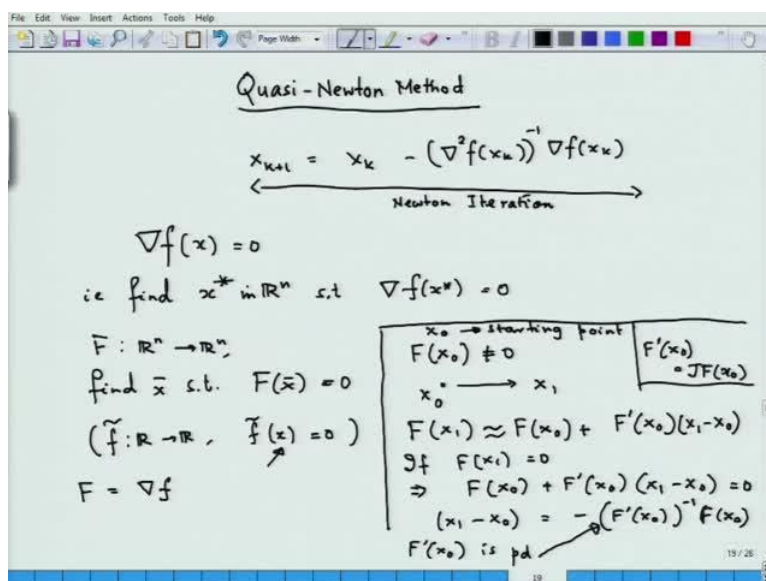 File Edit View Insert Actions Tools Help
Page Width
B I
Quasi-Newton Method
x_{k+1} = x_k - (∇²f(x_k))^{-1} ∇f(x_k)
Newton Iteration
∇f(x) = 0
ie find x* in ℝⁿ s.t ∇f(x*) = 0
F̄ : ℝⁿ → ℝⁿ,
find x̄ s.t. F(x̄) = 0
(f̃ : ℝ → ℝ, f̃(x) = 0)
F = ∇f
x₀ → starting point
F(x₀) ≠ 0
x₀ → x₁
F'(x₀)
= JF(x₀)
F(x₁) ≈ F(x₀) + F'(x₀)(x₁-x₀)
If F(x₁) = 0
⇒ F(x₀) + F'(x₀)(x₁-x₀) = 0
(x₁-x₀) = -(F'(x₀))^{-1} F(x₀)
F'(x₀) is pd
19/26
19